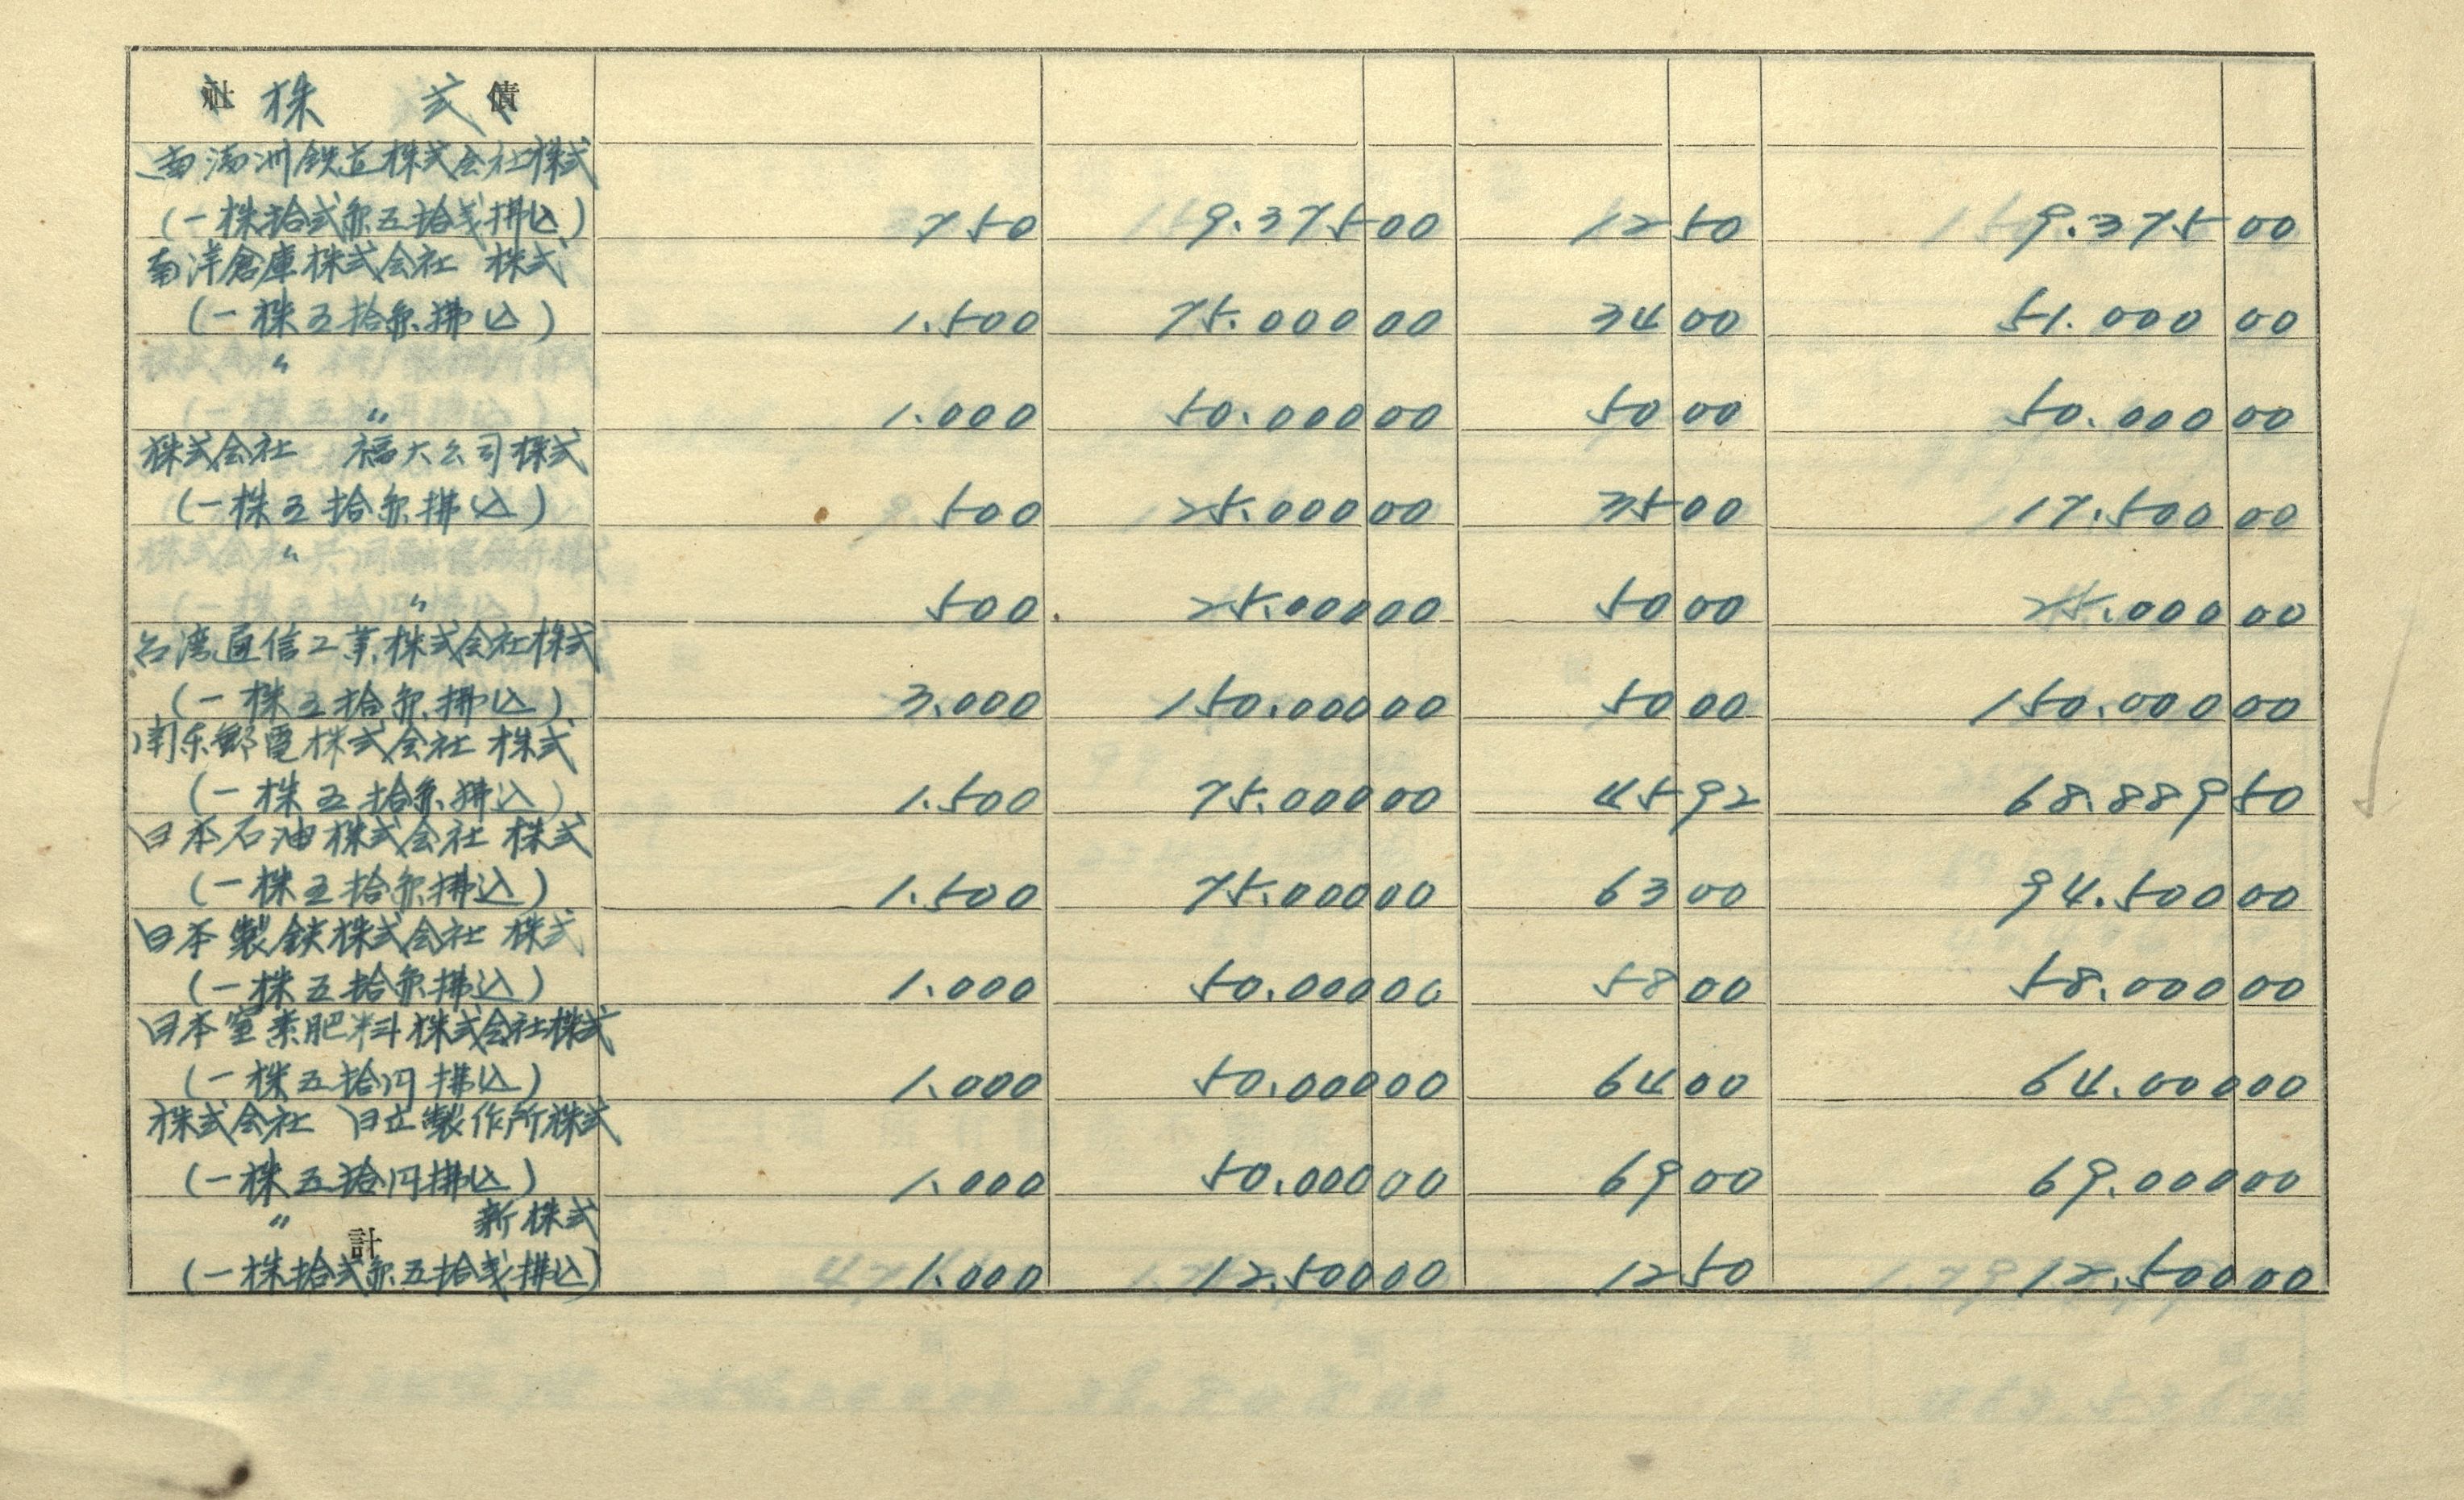 社株　式債
南満洲鉄道株式会社株式
(一株拾弍円五拾銭拂込) 750 9.375 00 12 50 9.375 00
南洋倉庫株式会社 株式
(一株五拾円拂込) 1.500 75.000 00 34 00 51.000 00
〃
〃 1.000 50.000 00 50 00 50.000 00
株式会社 福大公司株式
(一株五拾円拂込) 500 25.000 00 35 00 17.500 00
〃
〃 500 25.000 00 50 00 25.000 00
台湾通信工業株式会社株式
(一株五拾円拂込) 3.000 150.000 00 50 00 150.000 00
関東郵電株式会社 株式
(一株五拾円拂込) 1.500 75.000 00 45 92 68.889 50
日本石油株式会社 株式
(一株五拾円拂込) 1.500 75.000 00 63 00 94.500 00
日本製鉄株式会社 株式
(一株五拾円拂込) 1.000 50.000 00 58 00 58.000 00
日本窒素肥料株式会社株式
(一株五拾円拂込) 1.000 50.000 00 64 00 64.000 00
株式会社 日立製作所株式
(一株五拾円拂込) 1.000 50.000 00 69 00 69.000 00
〃 新株式
計
(一株拾弍円五拾銭拂込) 1.000 12.500 00 12 50 12.500 00